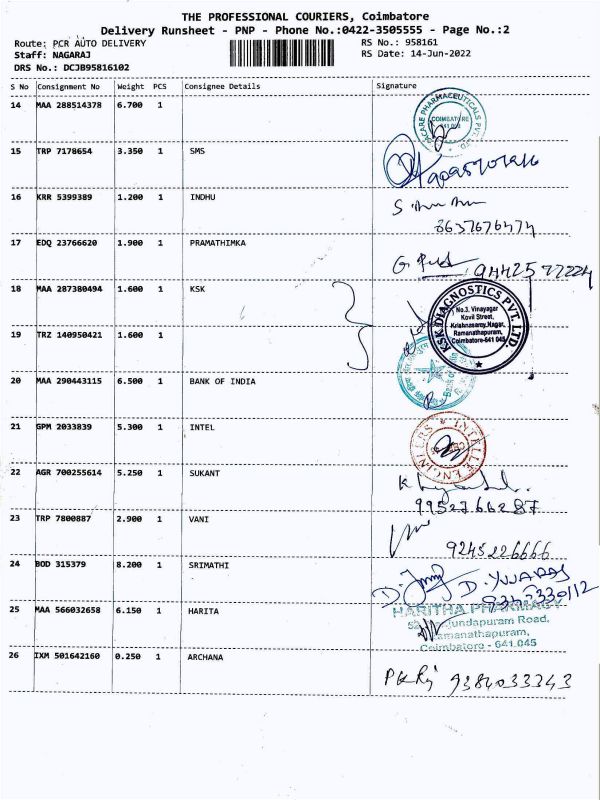 THE PROFESSIONAL COURIERS, Coimbatore
Delivery Runsheet - PNP - Phone No.:0422-3505555 - Page No.:2
Route: PCR AUTO DELIVERY RS No.: 958161
Staff: NAGARAJ RS Date: 14-Jun-2022
DRS No.: DCJB95816102
S No Consignment No Weight PCS Consignee Details Signature
14 MAA 288514378 6.700 1
PHARMACEUTICALS PVT. LTD.
COIMBATORE
15 TRP 7178654 3.350 1 SMS
16 KRR 5399389 1.200 1 INDHU
8637676474
17 EDQ 23766620 1.900 1 PRAMATHIMKA
18 MAA 287380494 1.600 1 KSK
KSK DIAGNOSTICS PVT. LTD.
No.3, Vinayagar
Kovil Street,
Krishnasamy Nagar,
Ramanathapuram,
Coimbatore-641 045
19 TRZ 140950421 1.600 1
20 MAA 290443115 6.500 1 BANK OF INDIA
21 GPM 2033839 5.300 1 INTEL
22 AGR 700255614 5.250 1 SUKANT
9952766287
23 TRP 7800887 2.900 1 VANI
9245226666
24 BOD 315379 8.200 1 SRIMATHI
D. YUVARAJ
25 MAA 566032658 6.150 1 HARITA
HARITHA PHARMACY
Ramanathapuram,
Coimbatore - 641 045
26 IXM 501642160 0.250 1 ARCHANA
9384033343